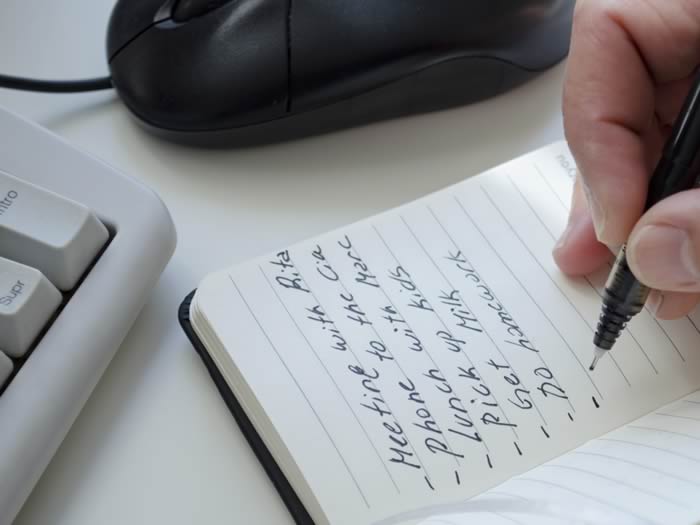 ntro
Supr
- Meeting with Rita
- phone to the Cia
- Lunch with Marc
- pick up kids
- Get Milk
- Do homework
-